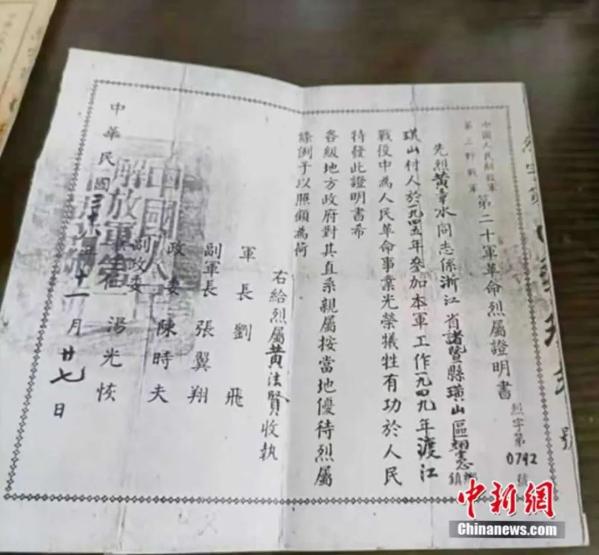 號
中國人民解放軍
第三野戰軍
第二十軍革命烈屬證明書
烈字第0742號
先烈黃水同志係浙江省諸暨縣璜山區鄉鎮
山村人於一九四五年參加本軍工作一九四九年渡江
戰役中為人民革命事業光榮犧牲有功於人民
特發此證明書希
各級地方政府對其直系親屬按當地優待烈屬
條例予以照顧為荷
右給烈屬黃法賢收執
軍長 劉飛
副軍長 張翼翔
政委 陳時夫
副政委 湯光恢
中華民國十一月廿七日
中國人
解放軍第
中新網
Chinanews.com